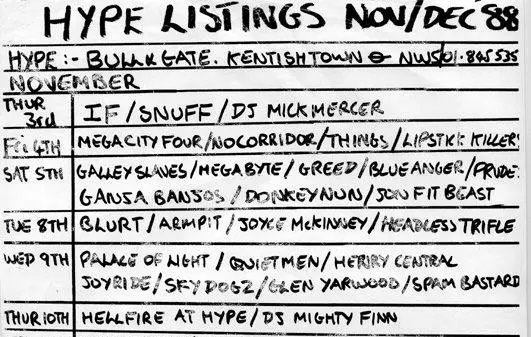 HYPE LISTINGS NOV/DEC '88
HYPE:- BULL & GATE. KENTISHTOWN ⊖ NW5/01.845535
NOVEMBER
THUR 3rd IF/SNUFF/DJ MICK MERCER
Fri 4TH MEGACITY FOUR/NO CORRIDOR/THINGS/LIPSTICK KILLER
SAT 5TH GALLEY SLAVES/MEGABYTE/GREED/BLUE ANGER/PRUDE
GANJA BANJOS/DONKEY NUN/JON FIT BEAST
TUE 8TH BLURT/ARMPIT/JOYCE McKINNEY/HEADLESS TRIFLE
WED 9TH PALACE OF NIGHT/QUIET MEN/HENRY CENTRAL
JOYRIDE/SKY DOGZ/GLEN YARWOOD/SPAM BASTARD
THUR 10TH HELLFIRE AT HYPE/DJ MIGHTY FINN